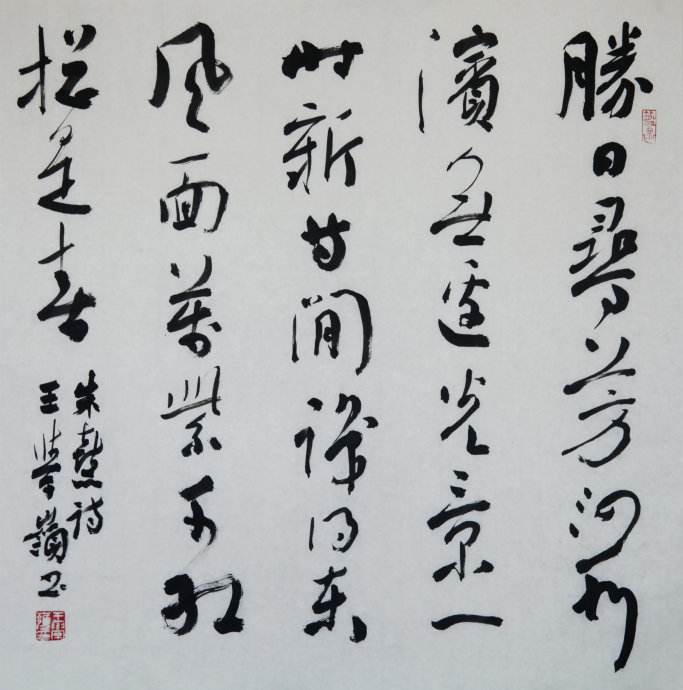 勝日尋芳泗水
濱無邊光景一
時新等閒識得東
風面萬紫千紅
總是春
朱熹詩
王學嶺書